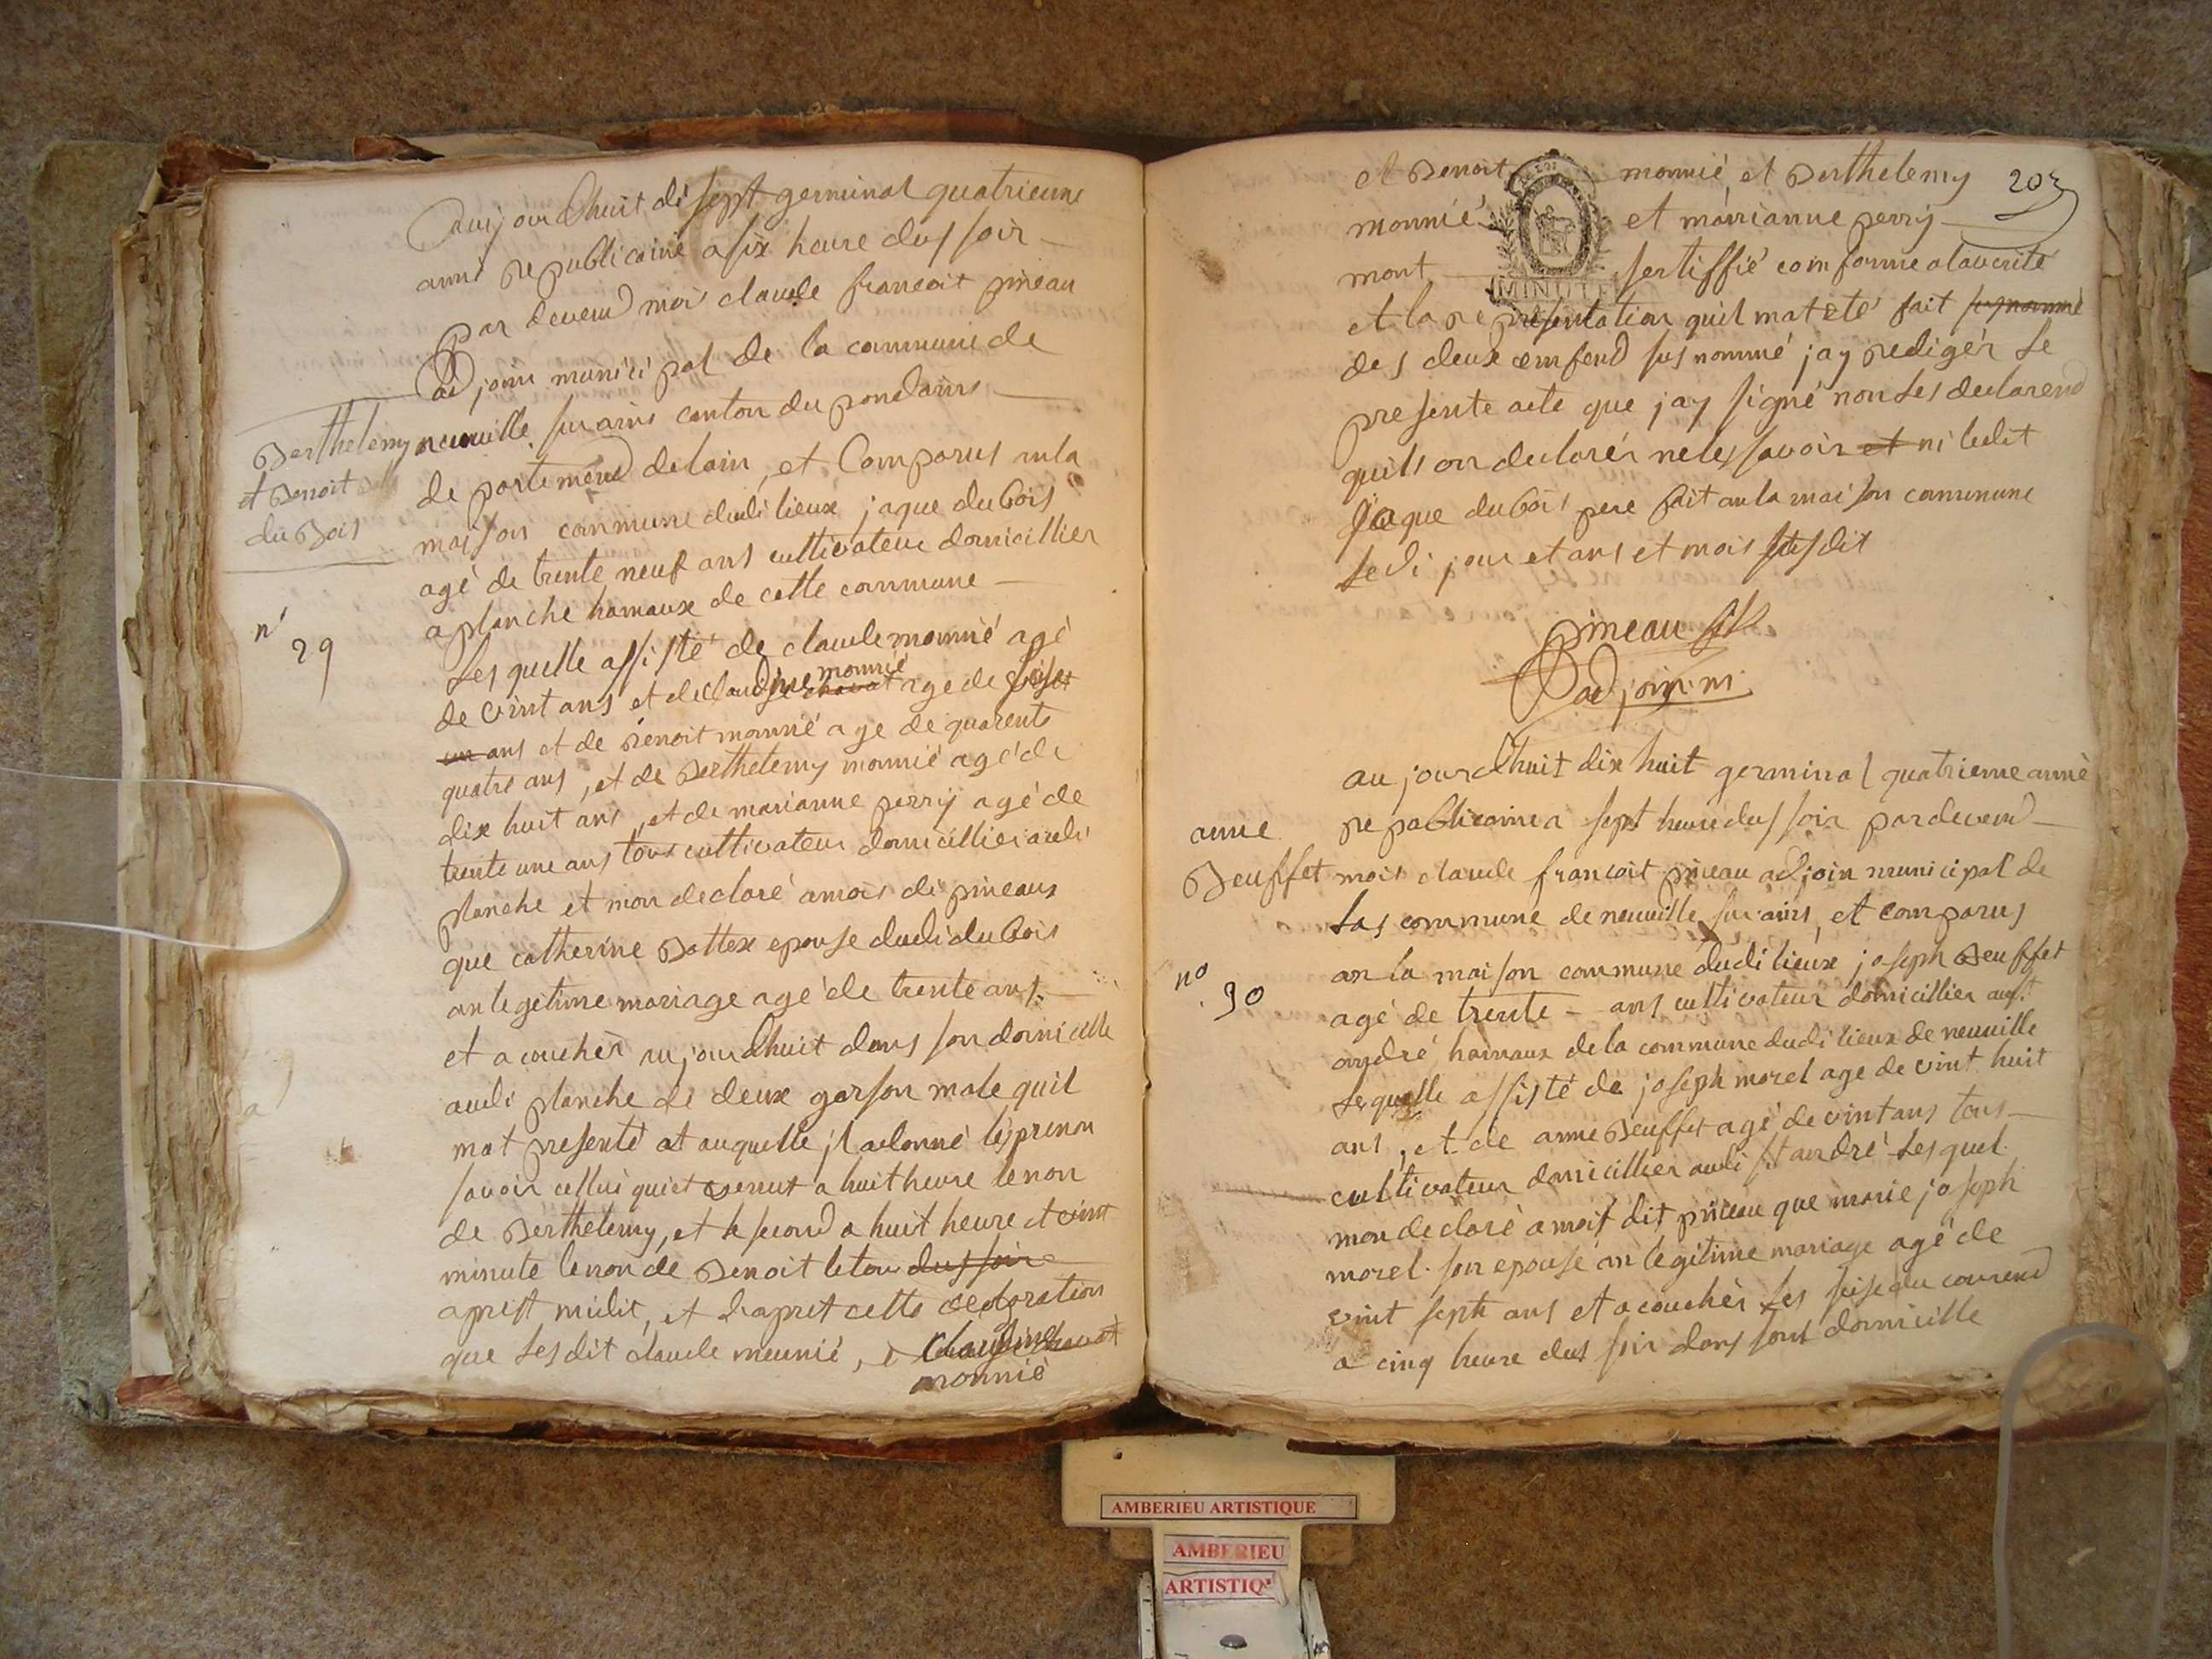 Aujourdhuit di sept germinal quatrieme
anné republicaine a six heure dus soir
par devend moi claude francoit pineau
adjoin municipal de la commune de
neuville sur ains canton du pondains
Berthelemy
et Benoit
du Bois
de partemend delain, et Comparus anla
maison commune dudi lieux jaque dubois
agé de trente neuf ans cultivateur domicillier
a planche hamaux de cette commune
n°
29
Lesquelle assisté de claude monnié agé
de vint ans et de Claudine monnié agé de
ans et de Benoit monnié age de quarente
quatre ans, et de Berthelemy monnié agé de
dix huit ans, et de marianne perrij agé de
trente une ans tous cultivateur domicillier audi
planche et mon declaré amoi di pineaux
que catherine Bottex epouse dudi dubois
an legitime mariage agé de trente ans
et acouchèr aujourdhuit dans son domicille
audi planche de deux garson male quil
mat presenté at auquelle jl adonné lesprenon
savoir cellui quiet venut a huit heure lenon
de Berthelemy, et le second a huit heure et vint
minute lenon de Benoit letou dus soir
aprest midit, et dapret cette declaration
que lesdit claude meunié, e Claudine chavat
monnié
203
et Benoit monnié, et Berthelemy
monnié et marianne perrij
mont sertiffié comforme alaverité
MINUTE
et la representation quil mat eté fait susnommé
des deux emfend susnommé jay redigér le
presente acte que jay signé non les declarend
quils on declarér neles savoir et ni ledit
jaque dubois pere fait anla maison commune
ledi jour et ans et mois susdit
pineau fils
adjoin m.
au jourdhuit dix huit germinal quatrieme anné
republicaine a sept heure dus soir pardevend
anne
Beuffet
mois claude francoit pineau adjoin municipal de
las commune de neuville sur ains, et comparus
an la maison commune dudi lieux joseph Beuffet
n°
30
agé de trente ans cultivateur domicillier au st
andré hamaux de la commune dudi lieux de neuville
Lequelle assisté de joseph morel age de vint huit
ans, et de anne Beuffet agé de vint ans tous
cultivateur domicillier audi st andré Lesquel
mon declaré amoi dit pineau que marie joseph
morel son epouse an legitime mariage agé de
vint seph ans et acouchèr les seise du courend
a cinq heure dus soir dans sont domicille
AMBERIEU ARTISTIQUE
AMBERIEU
ARTISTIQ